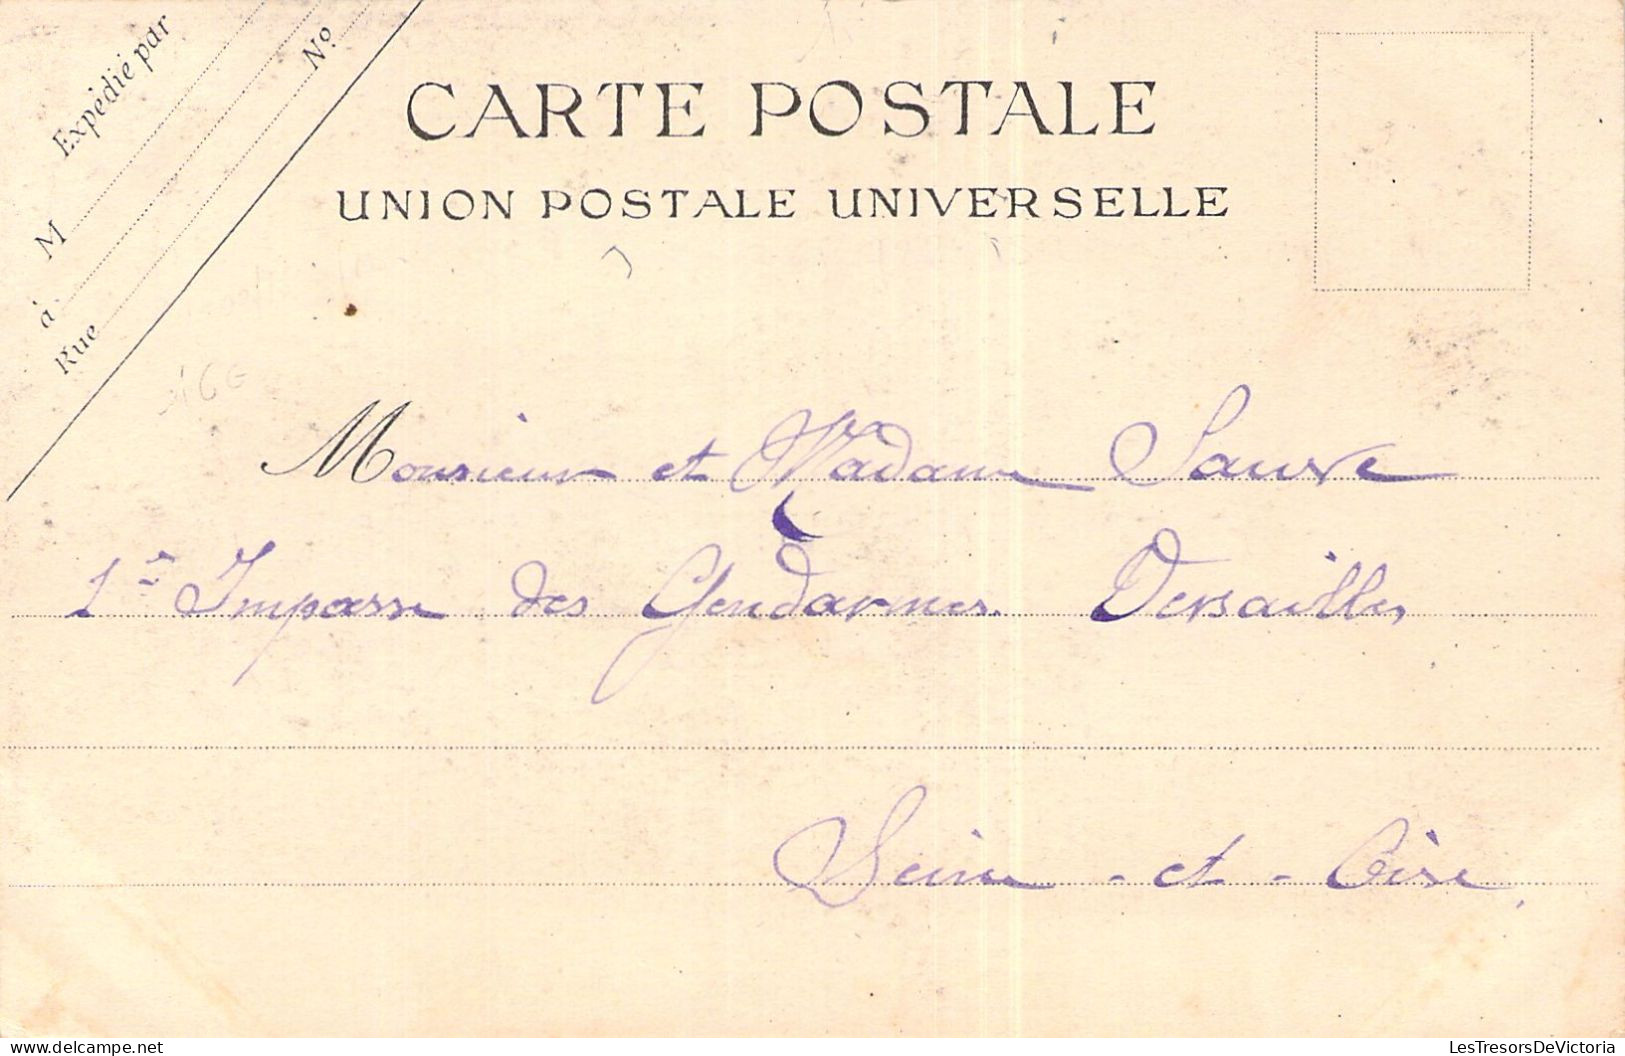 Expédié par
M
à
Rue Nº
CARTE POSTALE
UNION POSTALE UNIVERSELLE
Monsieur et Madame Sauve
1re Impasse des Gendarmes. Versailles
Seine-et-Oise.
LesTresorsDeVictoria